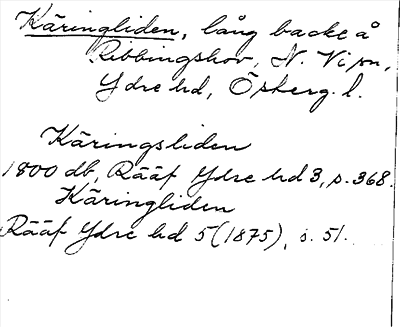 Käringliden, lång backe å
Ribbingshov, N. Vi sn,
Ydre hd, Östergl.
Käringsliden
1800 db, Rääf Ydre hd 3, s. 368.
Käringliden
Rääf Ydre hd 5 (1875), s. 51.